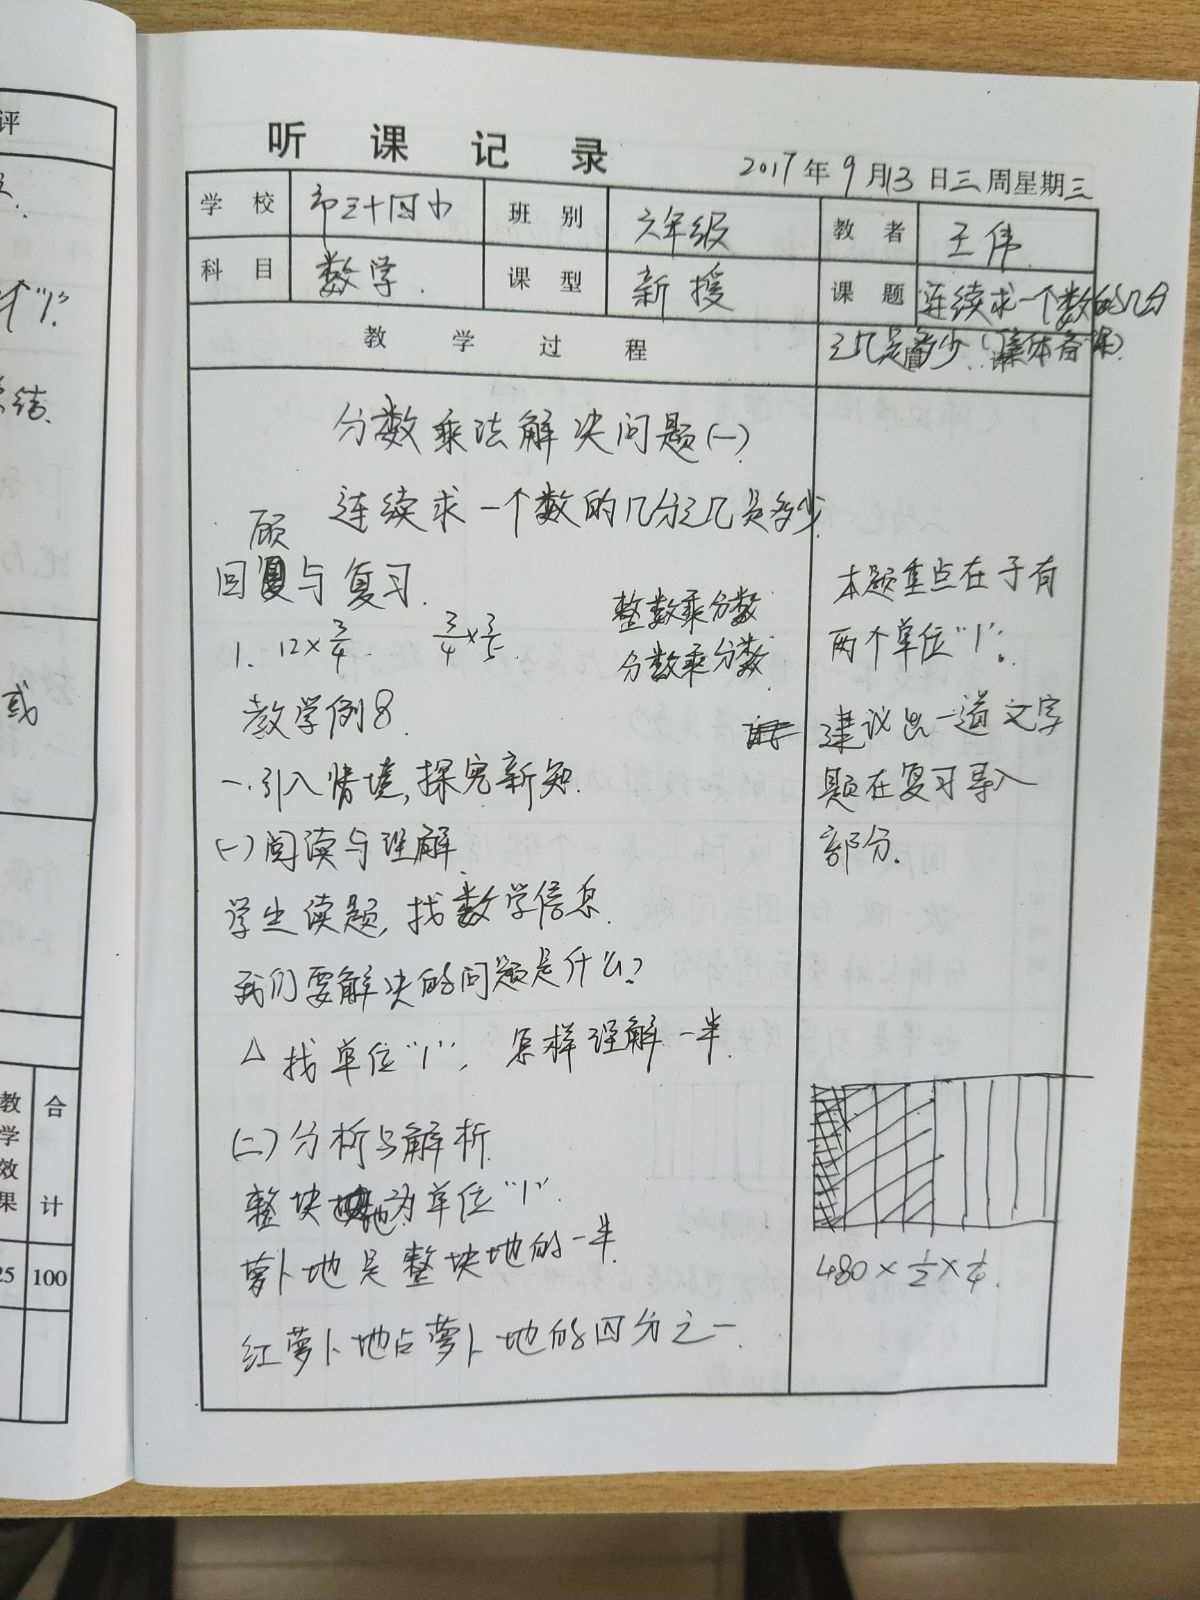 评
式"1".
总结.
或
教学效果
合计
25
100
听课记录
2017年9月13日三周星期三
学校
市三十四中
班别
六年级
教者
王伟
科目
数学.
课型
新授
课题
连续求一个数的几分
之几是多少.(集体备课).
教学过程
分数乘法解决问题(一)
连续求一个数的几分之几是多少
顾
回与复习.
1. 12×3/4. 3/4×3/5.
整数乘分数
分数乘分数.
教学例8
一.引入情境,探究新知.
(一)阅读与理解
学生读题,找数学信息.
我们要解决的问题是什么?
△找单位"1", 怎样理解一半.
(二)分析与解析.
整块地为单位"1".
萝卜地是整块地的一半
红萝卜地占萝卜地的四分之一.
本题重点在于有
两个单位"1".
建议出一道文字
题在复习导入
部分.
480×1/2×1/4.